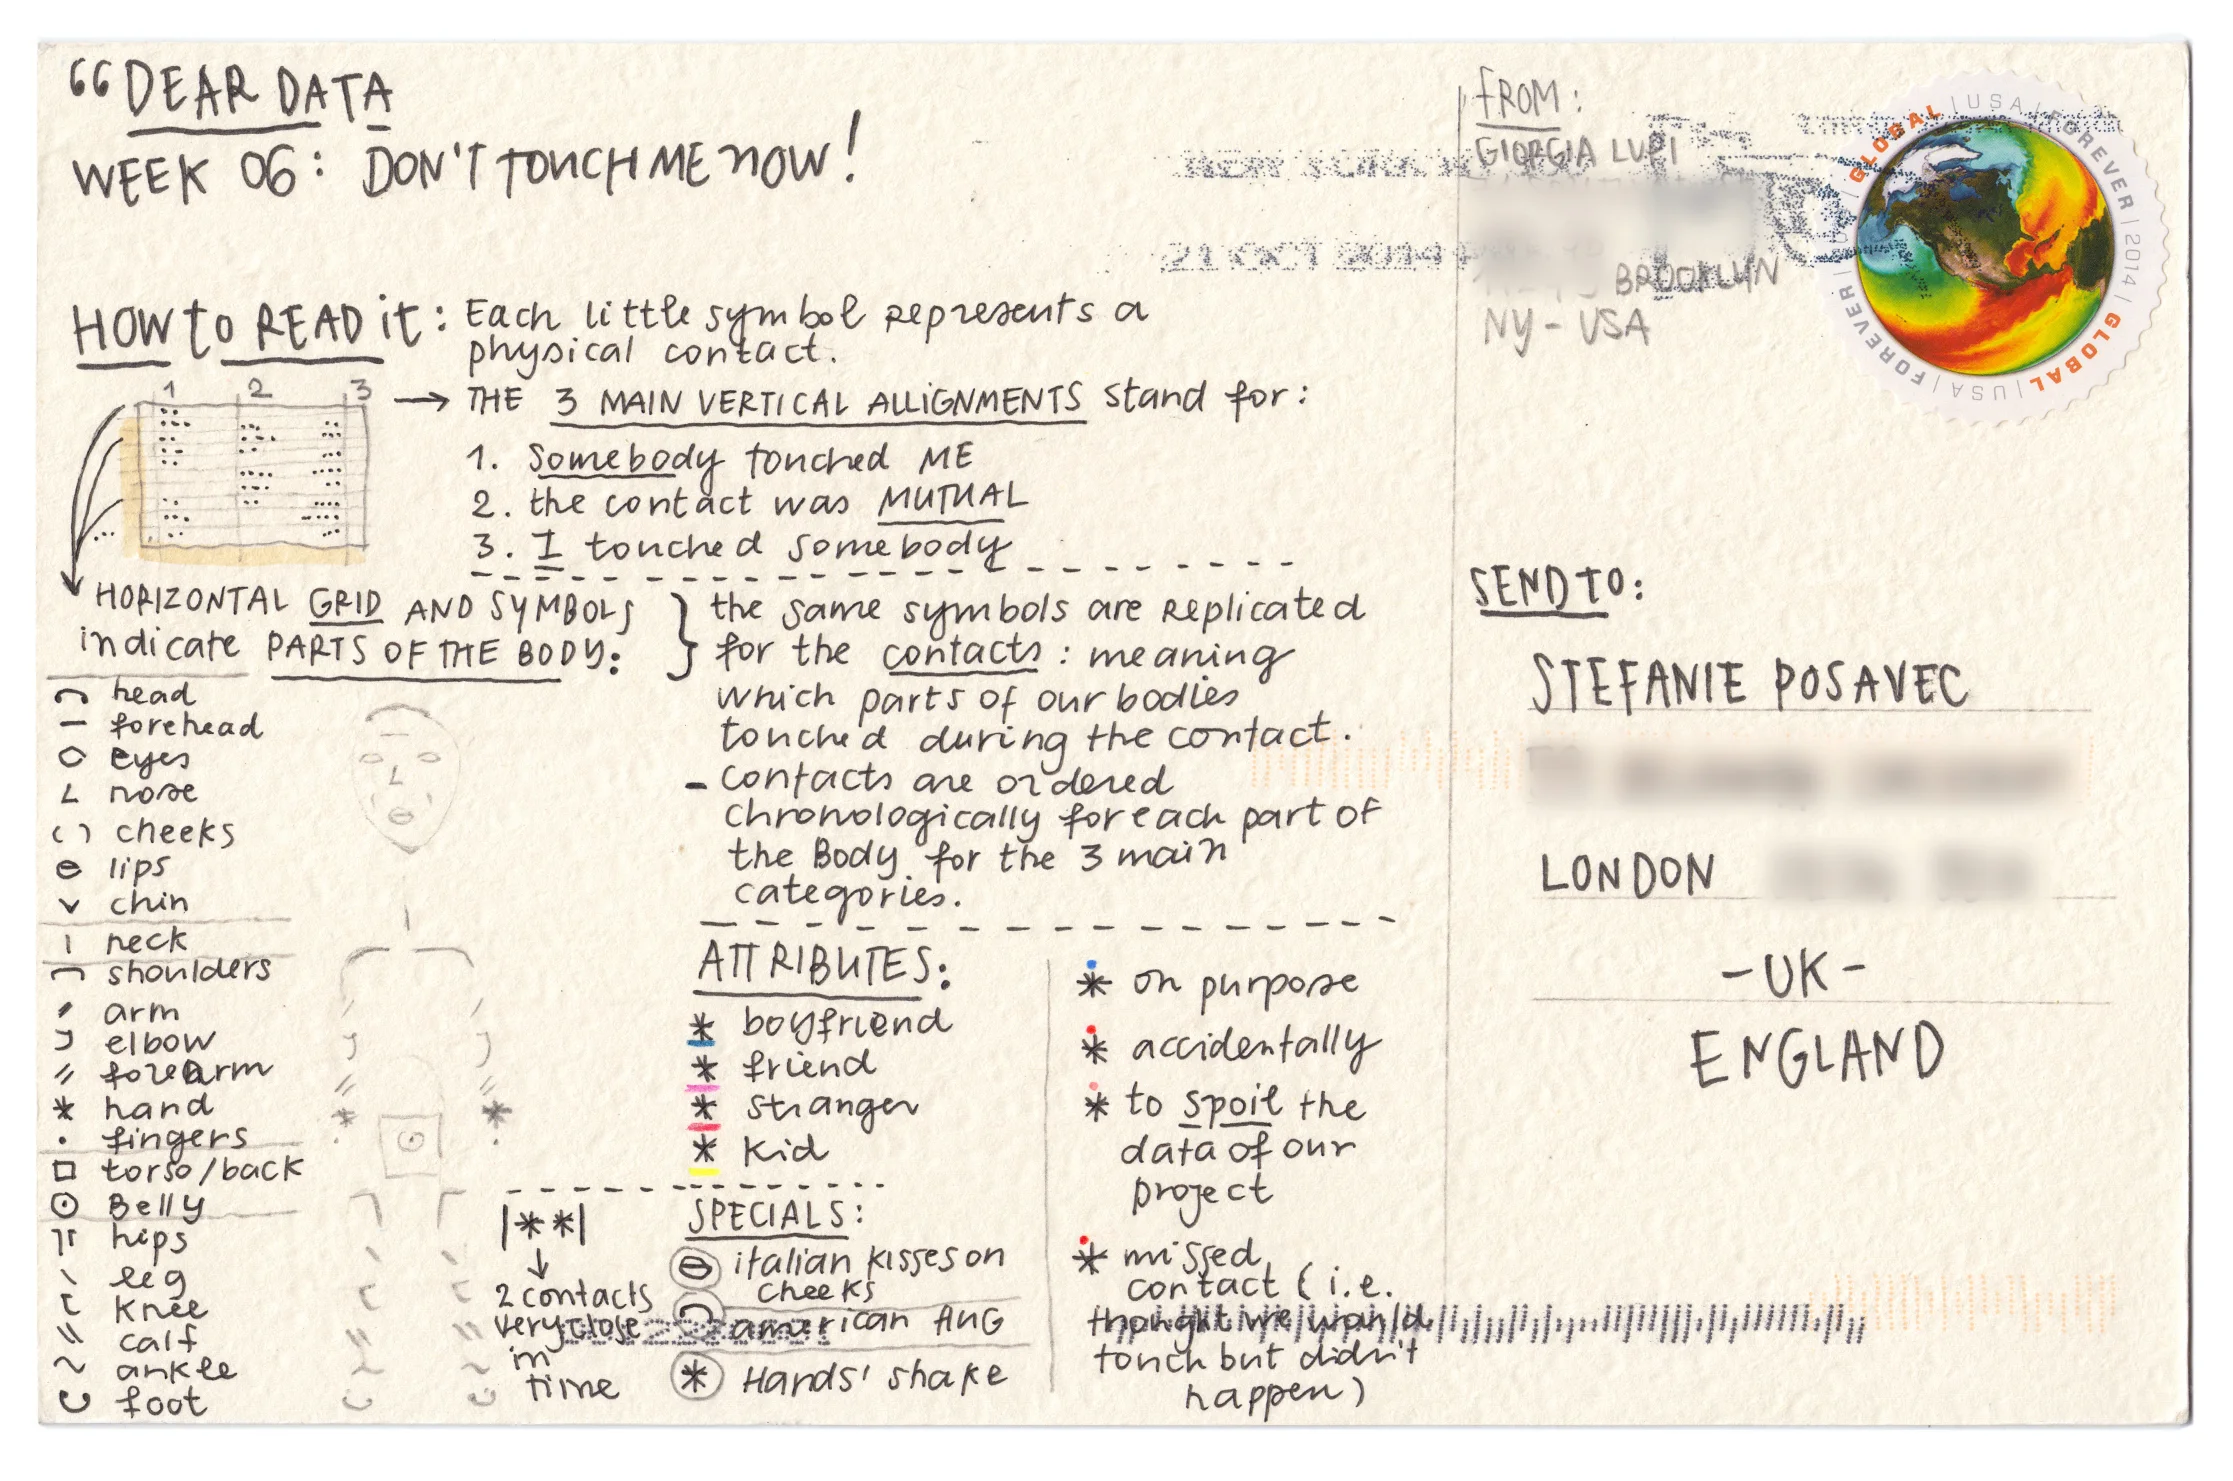 “DEAR DATA
WEEK 06: DON'T TOUCH ME NOW!
HOW to READ it: Each little symbol represents a
physical contact.
1 2 3
→ THE 3 MAIN VERTICAL ALLIGNMENTS stand for:
1. Somebody touched ME
2. the contact was MUTUAL
3. I touched somebody
...
HORIZONTAL GRID AND SYMBOLS
indicate PARTS OF THE BODY:
head
forehead
eyes
nose
cheeks
lips
chin
neck
shoulders
arm
elbow
forearm
hand
fingers
torso/back
Belly
hips
leg
knee
calf
ankle
foot
} the same symbols are replicated
for the contacts: meaning
which parts of our bodies
touched during the contact.
- contacts are ordered
chronologically for each part of
the Body for the 3 main
categories.
ATTRIBUTES:
* boyfriend
* friend
* stranger
* kid
* on purpose
* accidentally
* to spoil the
data of our
project
* missed
contact (i.e.
thought we would
touch but didn't
happen)
|**|
↓
2 contacts
very close
in
time
SPECIALS:
italian kisses on
cheeks
american HUG
* Hands' shake
FROM:
GIORGIA LUPI
BROOKLYN
NY - USA
NEW YORK
21 OCT 2014
GLOBAL | USA | FOREVER | 2014 | GLOBAL | USA | FOREVER
SEND TO:
STEFANIE POSAVEC
LONDON
- UK -
ENGLAND